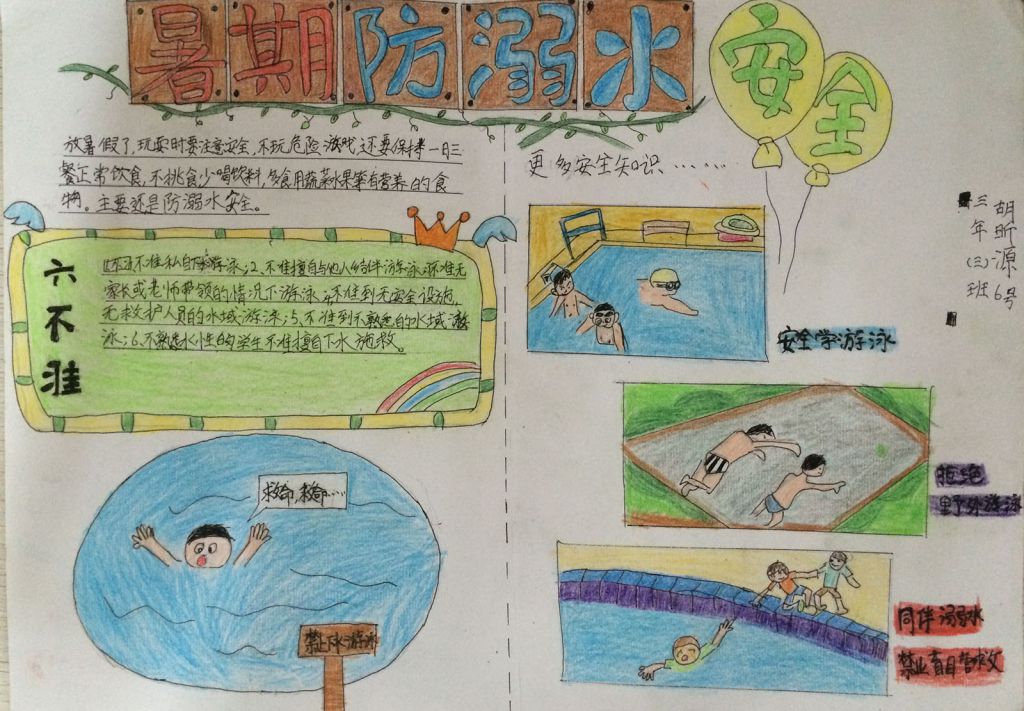 暑期防溺水
安全
放暑假了,玩耍时要注意安全,不玩危险游戏,还要保持一日三
餐正常饮食,不挑食少喝饮料,多食用蔬菜水果等有营养的食
物。主要还是防溺水安全。
六不准
不准私自下水游泳;2、不准擅自与他人结伴游泳;3、不准无
家长或老师带领的情况下游泳;4、不准到无安全设施,
无救护人员的水域游泳;5、不准到不熟悉的水域游
泳;6、不熟悉水性的学生不准擅自下水施救。
救命,救命……
禁止下水游泳
更多安全知识……
安全学游泳
拒绝
野外游泳
同伴溺水
禁止盲目营救
三年(三)班
胡昕源 6号